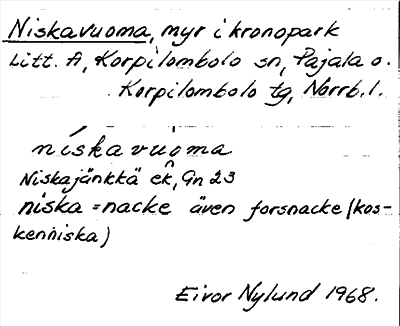 Niskavuoma, myr i kronopark
Litt. A, Korpilombolo sn, Pajala o.
Korpilombolo tg, Norrb. l.
niskavuoma
Niskajänkkä ek, Gn 23
niska = nacke även forsnacke (kos-
kenniska)
Eivor Nylund 1968.